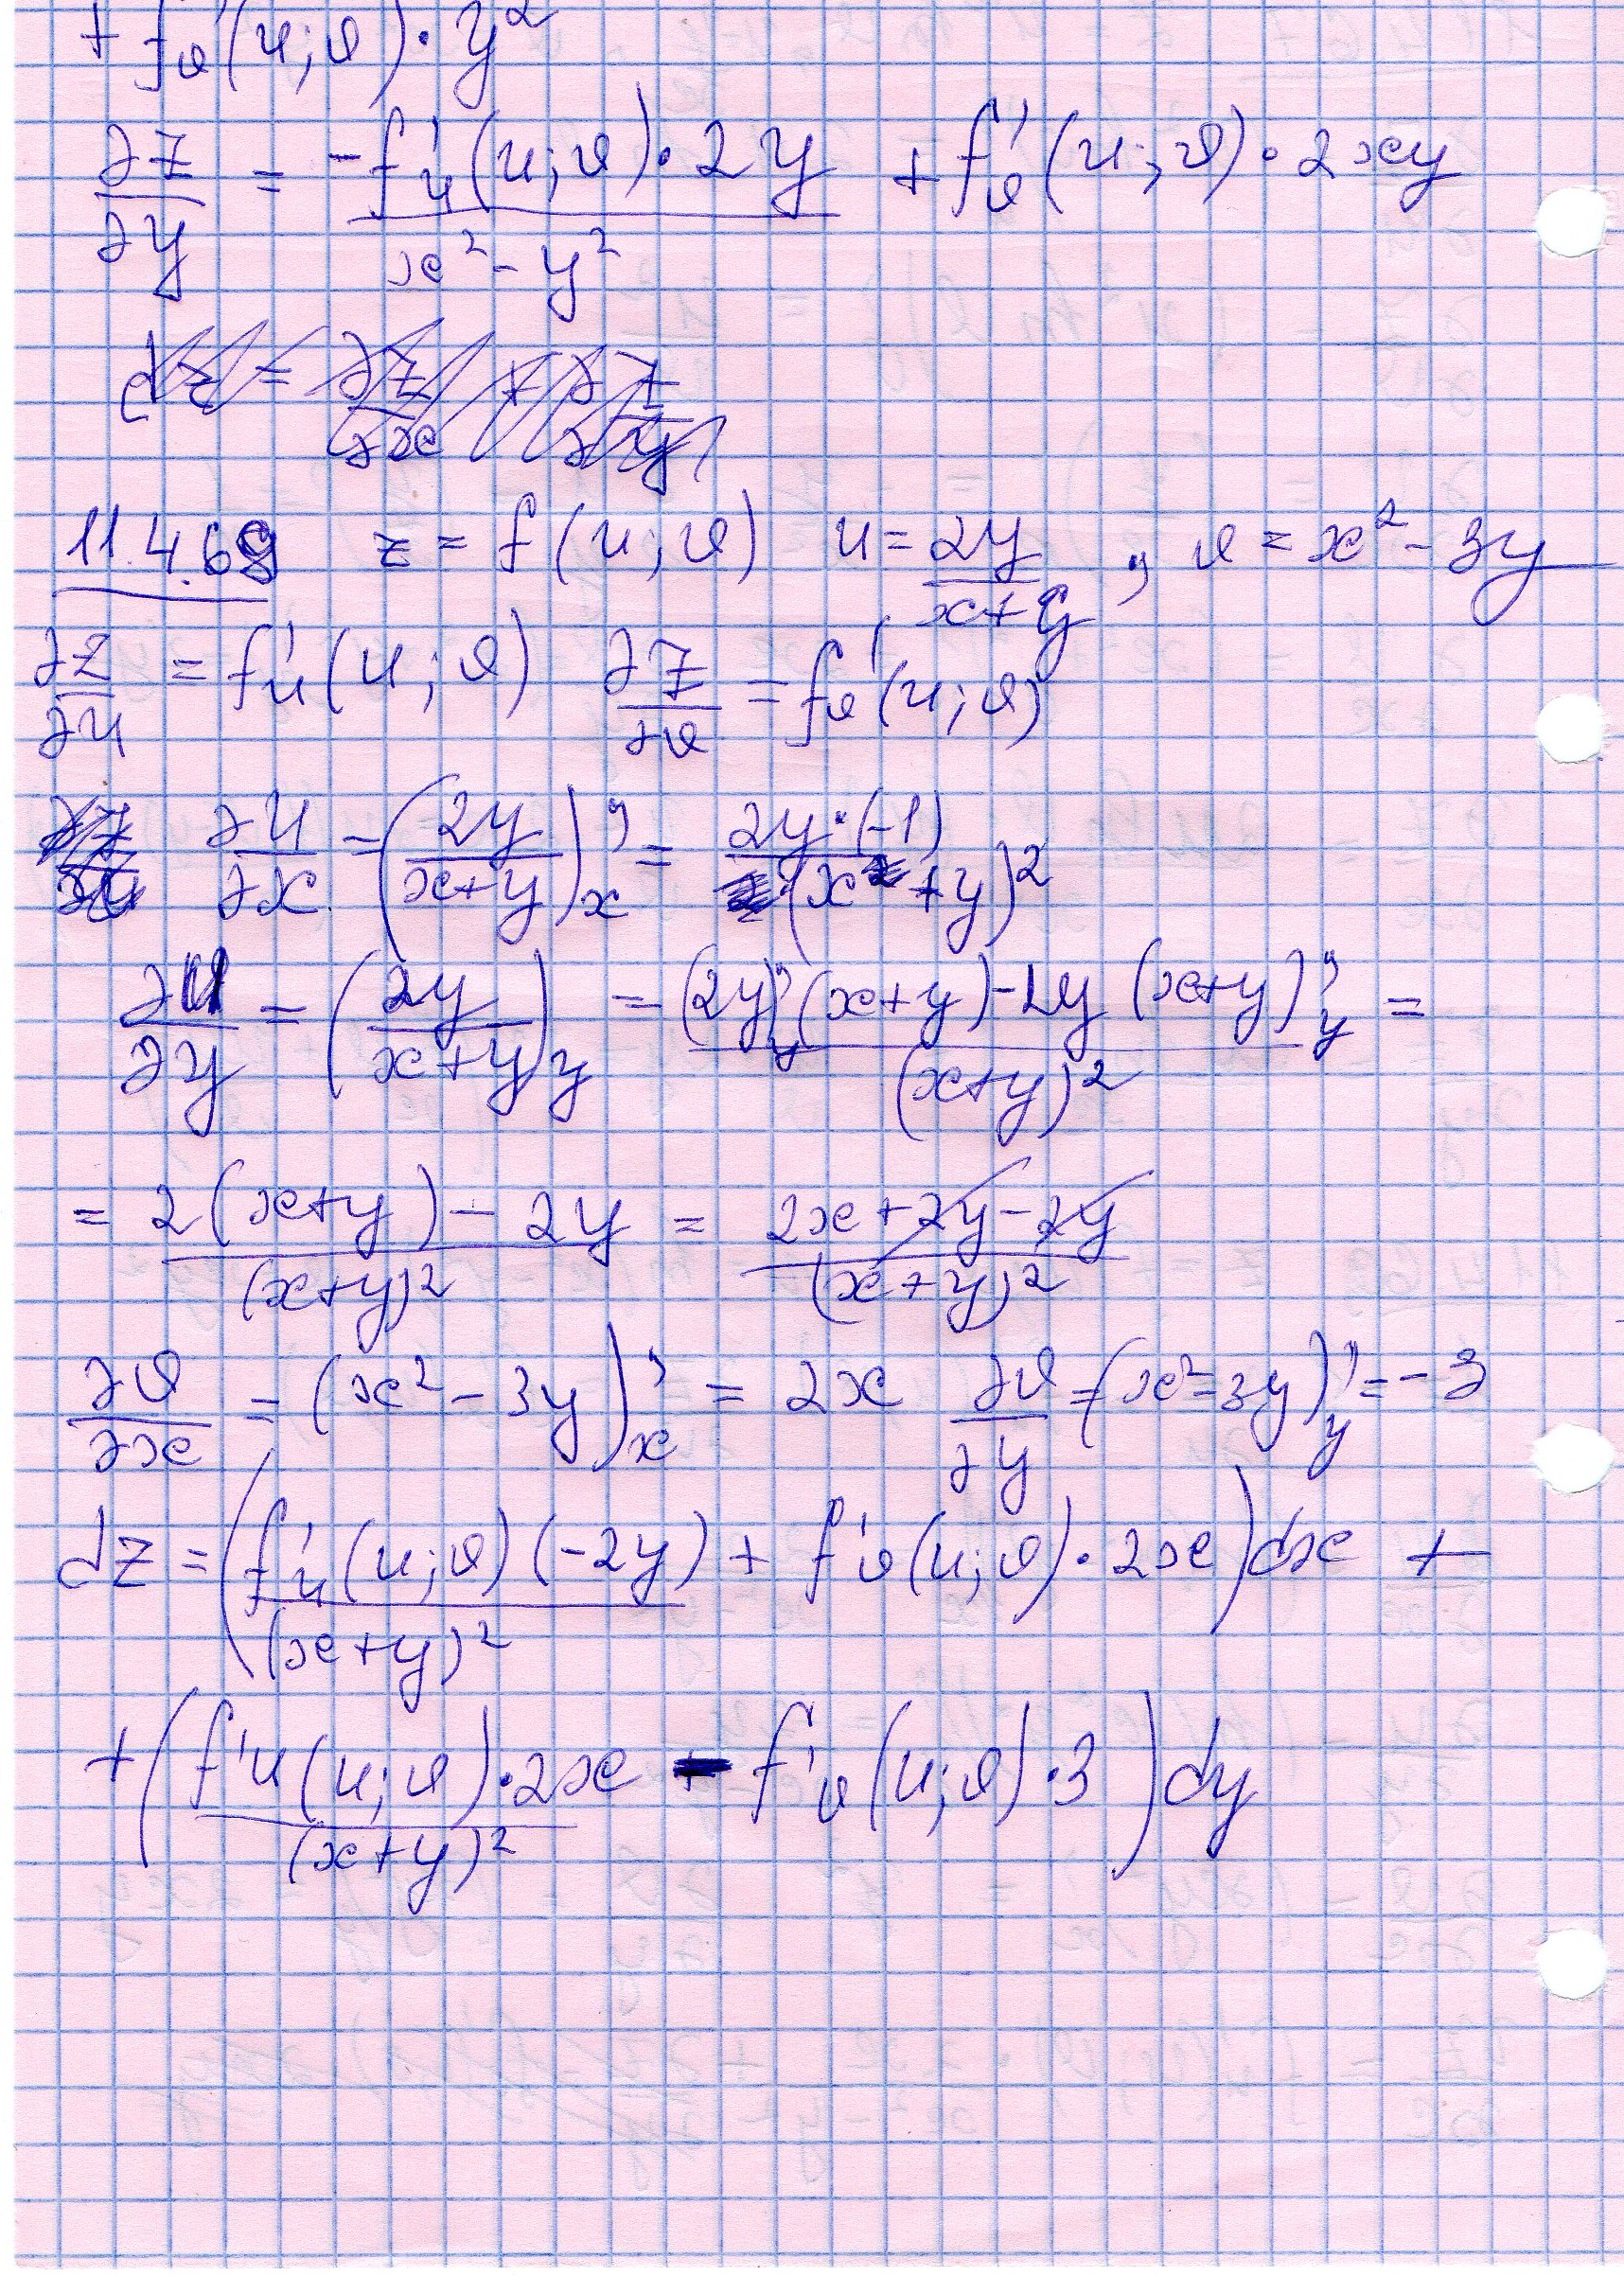 + f'v (u; v) · y²
∂z/∂y = -f'u (u; v) · 2y / (x² - y²) + f'v (u; v) · 2xy
dz = ∂z/∂x + ∂z/∂y
11.4.69 z = f (u; v) u = 2y/(x+y) , v = x² - 3y
∂z/∂u = f'u (u; v) ∂z/∂v = f'v (u; v)
∂u/∂x = (2y/(x+y))'x = 2y·(-1)/(x+y)²
∂u/∂y = (2y/(x+y))y = ((2y)'y (x+y) - 2y (x+y)'y)/(x+y)² =
= (2(x+y) - 2y)/(x+y)² = (2x + 2y - 2y)/(x+y)²
∂v/∂x = (x² - 3y)'x = 2x ∂v/∂y = (x² - 3y)'y = -3
dz = (f'u (u; v) (-2y)/(x+y)² + f'v (u; v) · 2x) dx +
+ (f'u (u; v) · 2x/(x+y)² - f'v (u; v) · 3) dy